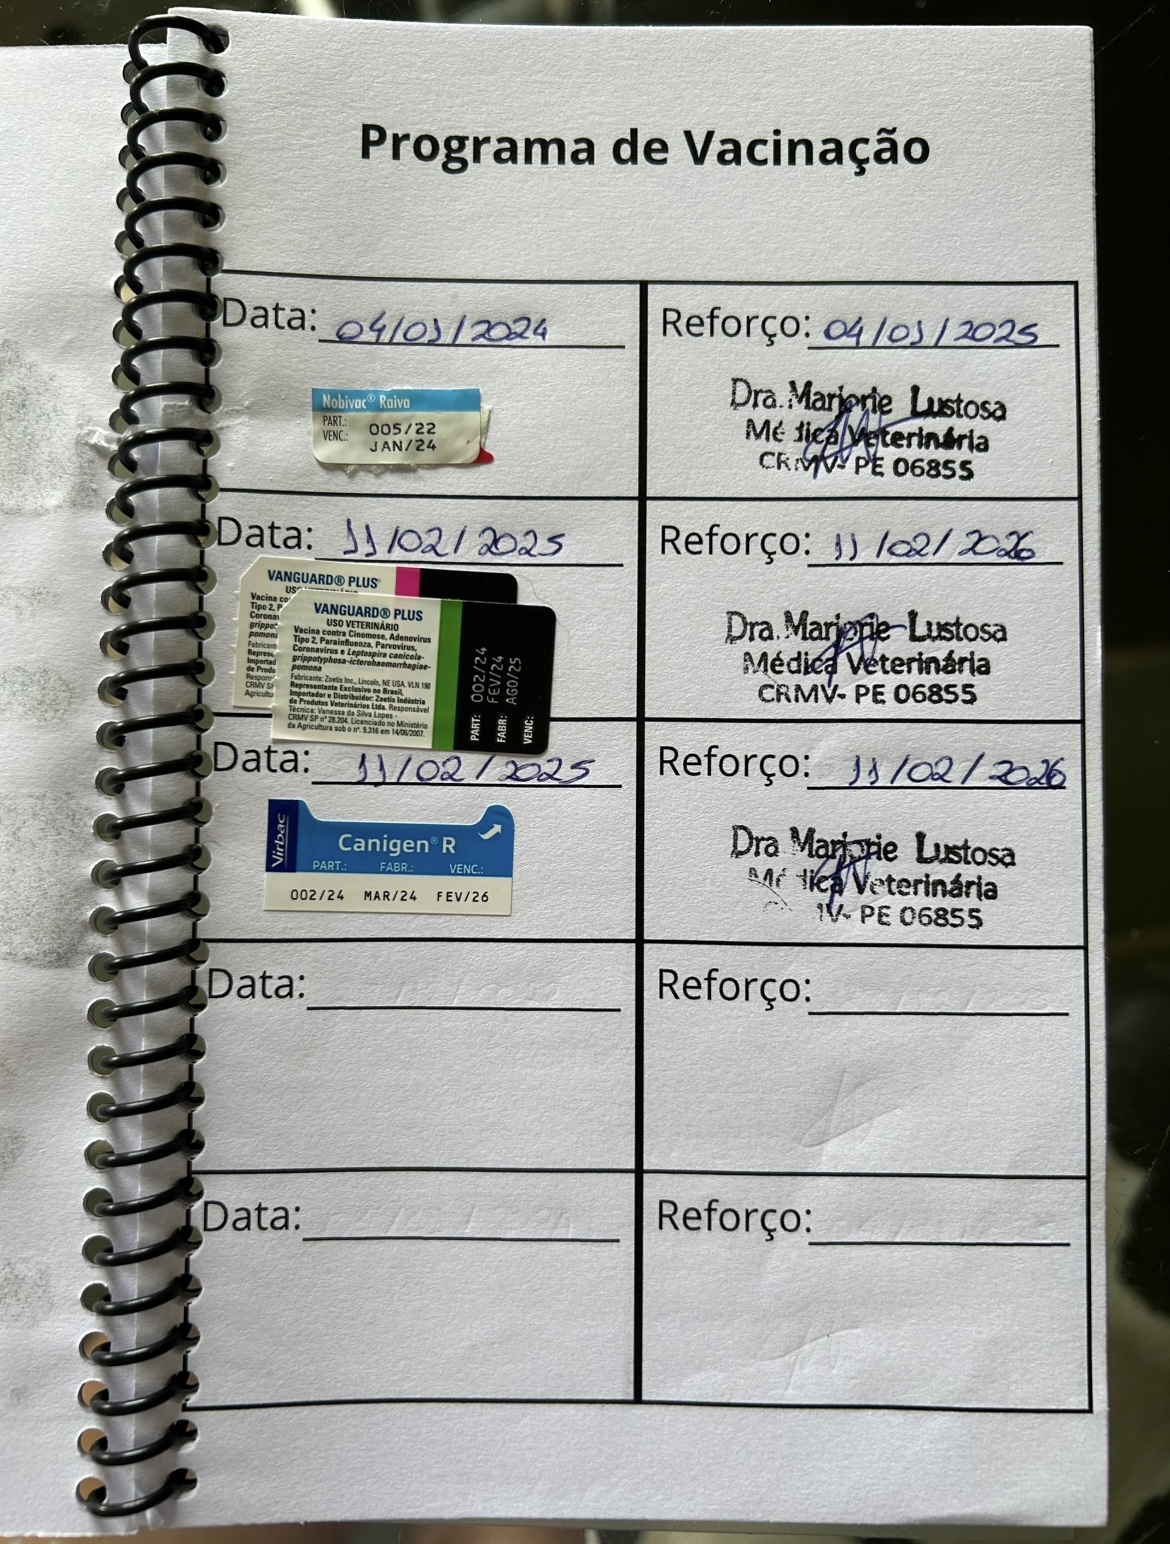 Programa de Vacinação
Data: 04/01/2024
Reforço: 04/01/2025
Nobivac® Raiva
PART.: 005/22
VENC.: JAN/24
Dra. Marjorie Lustosa
Médica Veterinária
CRMV- PE 06855
Data: 11/02/2025
Reforço: 11/02/2026
VANGUARD® PLUS
Vacina co
Tipo 2, P
Corona
grippot
pomon
Fabrican
Represe
Importad
de Produ
Respon
CRMV SP
Agricultu
VANGUARD® PLUS
USO VETERINÁRIO
Vacina contra Cinomose, Adenovirus
Tipo 2, Parainfluenza, Parvovirus,
Coronavirus e Leptospira canicola-
grippotyphosa-icterohaemorrhagiae-
pomona
Fabricante: Zoetis Inc., Lincoln, NE USA. VLN 190
Representante Exclusivo no Brasil,
Importador e Distribuidor: Zoetis Indústria
de Produtos Veterinários Ltda. Responsável
Técnica: Vanessa da Silva Lopes -
CRMV SP nº 28.204. Licenciado no Ministério
da Agricultura sob o nº. 9.316 em 14/06/2007.
PART: 002/24
FABR: FEV/24
VENC: AGO/25
Dra. Marjorie Lustosa
Médica Veterinária
CRMV- PE 06855
Data: 11/02/2025
Reforço: 11/02/2026
Virbac
Canigen® R
PART.: FABR.: VENC.:
002/24 MAR/24 FEV/26
Dra Marjorie Lustosa
Médica Veterinária
IV- PE 06855
Data:
Reforço:
Data:
Reforço: